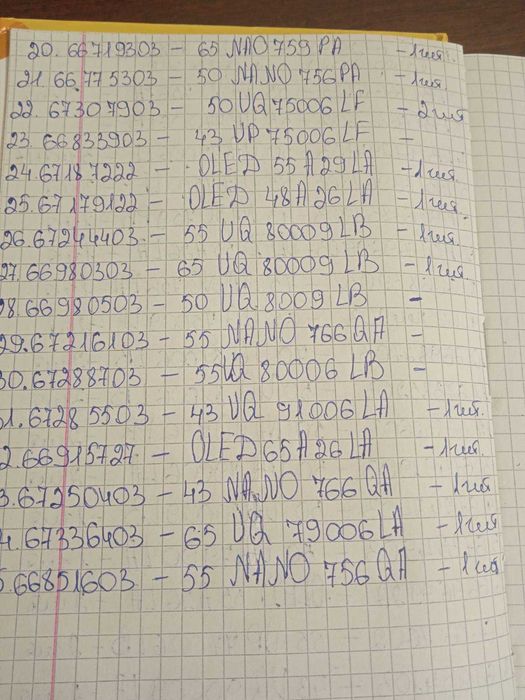 20. 66719303 - 65 NANO 759 PA - 1шт.
21. 66775303 - 50 NANO 756 PA - 1шт.
22. 67307903 - 50 UQ 75006 LF - 2шт
23. 66833903 - 43 UP 75006 LF -
24. 67187222 - OLED 55 A29 LA - 1шт.
25. 67179122 - OLED 48A26 LA - 1шт.
26. 67244403 - 55 UQ 80009 LB - 1шт.
27. 66980303 - 65 UQ 80009 LB - 1шт.
8. 66980503 - 50 UQ 8009 LB -
29. 67216103 - 55 NANO 766 QA -
30. 67288703 - 55UQ 80006 LB -
1. 67285503 - 43 UQ 91006 LA - 1шт.
2. 66915727 - OLED 65A26 LA - 1шт.
3. 67250403 - 43 NANO 766 QA - 1шт
4. 67336403 - 65 UQ 79006 LA - 1шт
5. 66851603 - 55 NANO 756 QA - 1шт